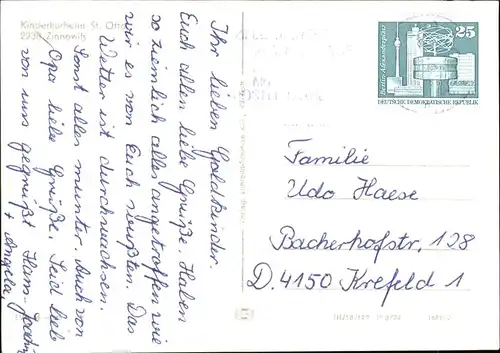 Kinderkurheim St. Otto
2238 Zinnowitz
Ihr lieben Goldkinder.
Euch allen liebe Grüße. Haben
so ziemlich alles angetroffen wie
wir es von Euch wußten. Das
Wetter ist durchwachsen.
Sonst alles munter. Auch von
Opa liebe Grüße. Seid lieb
von uns gegrüßt Hans-
+ Angela
25
Berlin-Alexanderplatz
DEUTSCHE DEMOKRATISCHE REPUBLIK
Familie
Udo Haese
Bacherhofstr. 128
D.4150 Krefeld 1